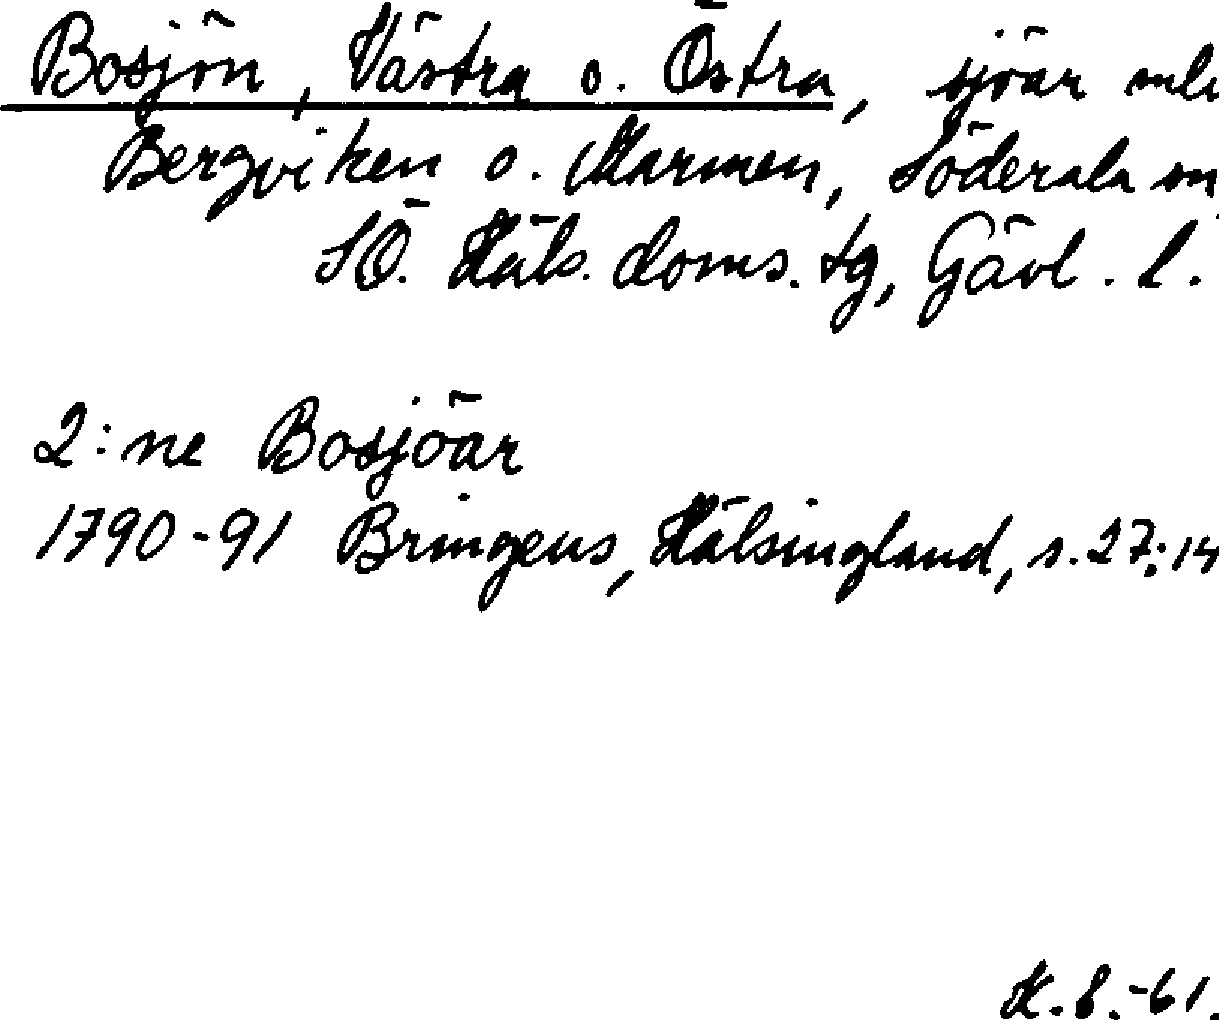 Bosjön, Västra o. Östra, sjöar
Bergviken o. Marmen, Söderala
SÖ. Häls. doms. tg, Gävl. l.
2:ne Bosjöar
1790-91 Bringéus, Hälsingland, s. 27; 14
K. 8.-61.